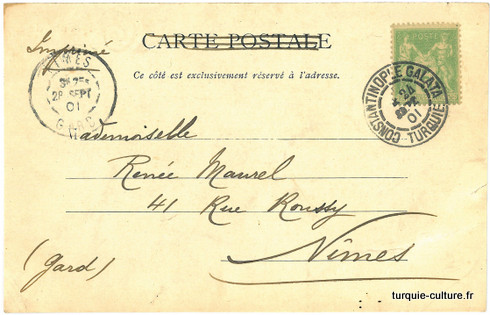 Imprimé
CARTE POSTALE
Ce côté est exclusivement réservé à l'adresse.
NIMES
28 SEPT
01
GARD
POSTE
CONSTANTINOPLE GALATA
24
01
TURQUIE
Mademoiselle
Renée Maurel
41 Rue Roussy
Nîmes
(Gard)
turquie-culture.fr